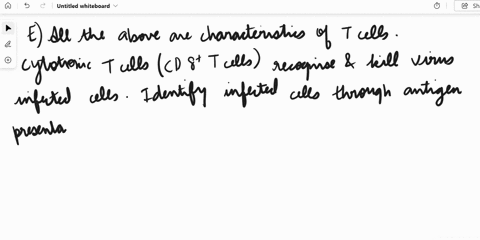 Untitled whiteboard
E) All the above are characteristics of T cells.
Cytotoxic T cells (CD 8+ T cells) recognise & kill virus
infected cells. Identify infected cells through antigen
presenta